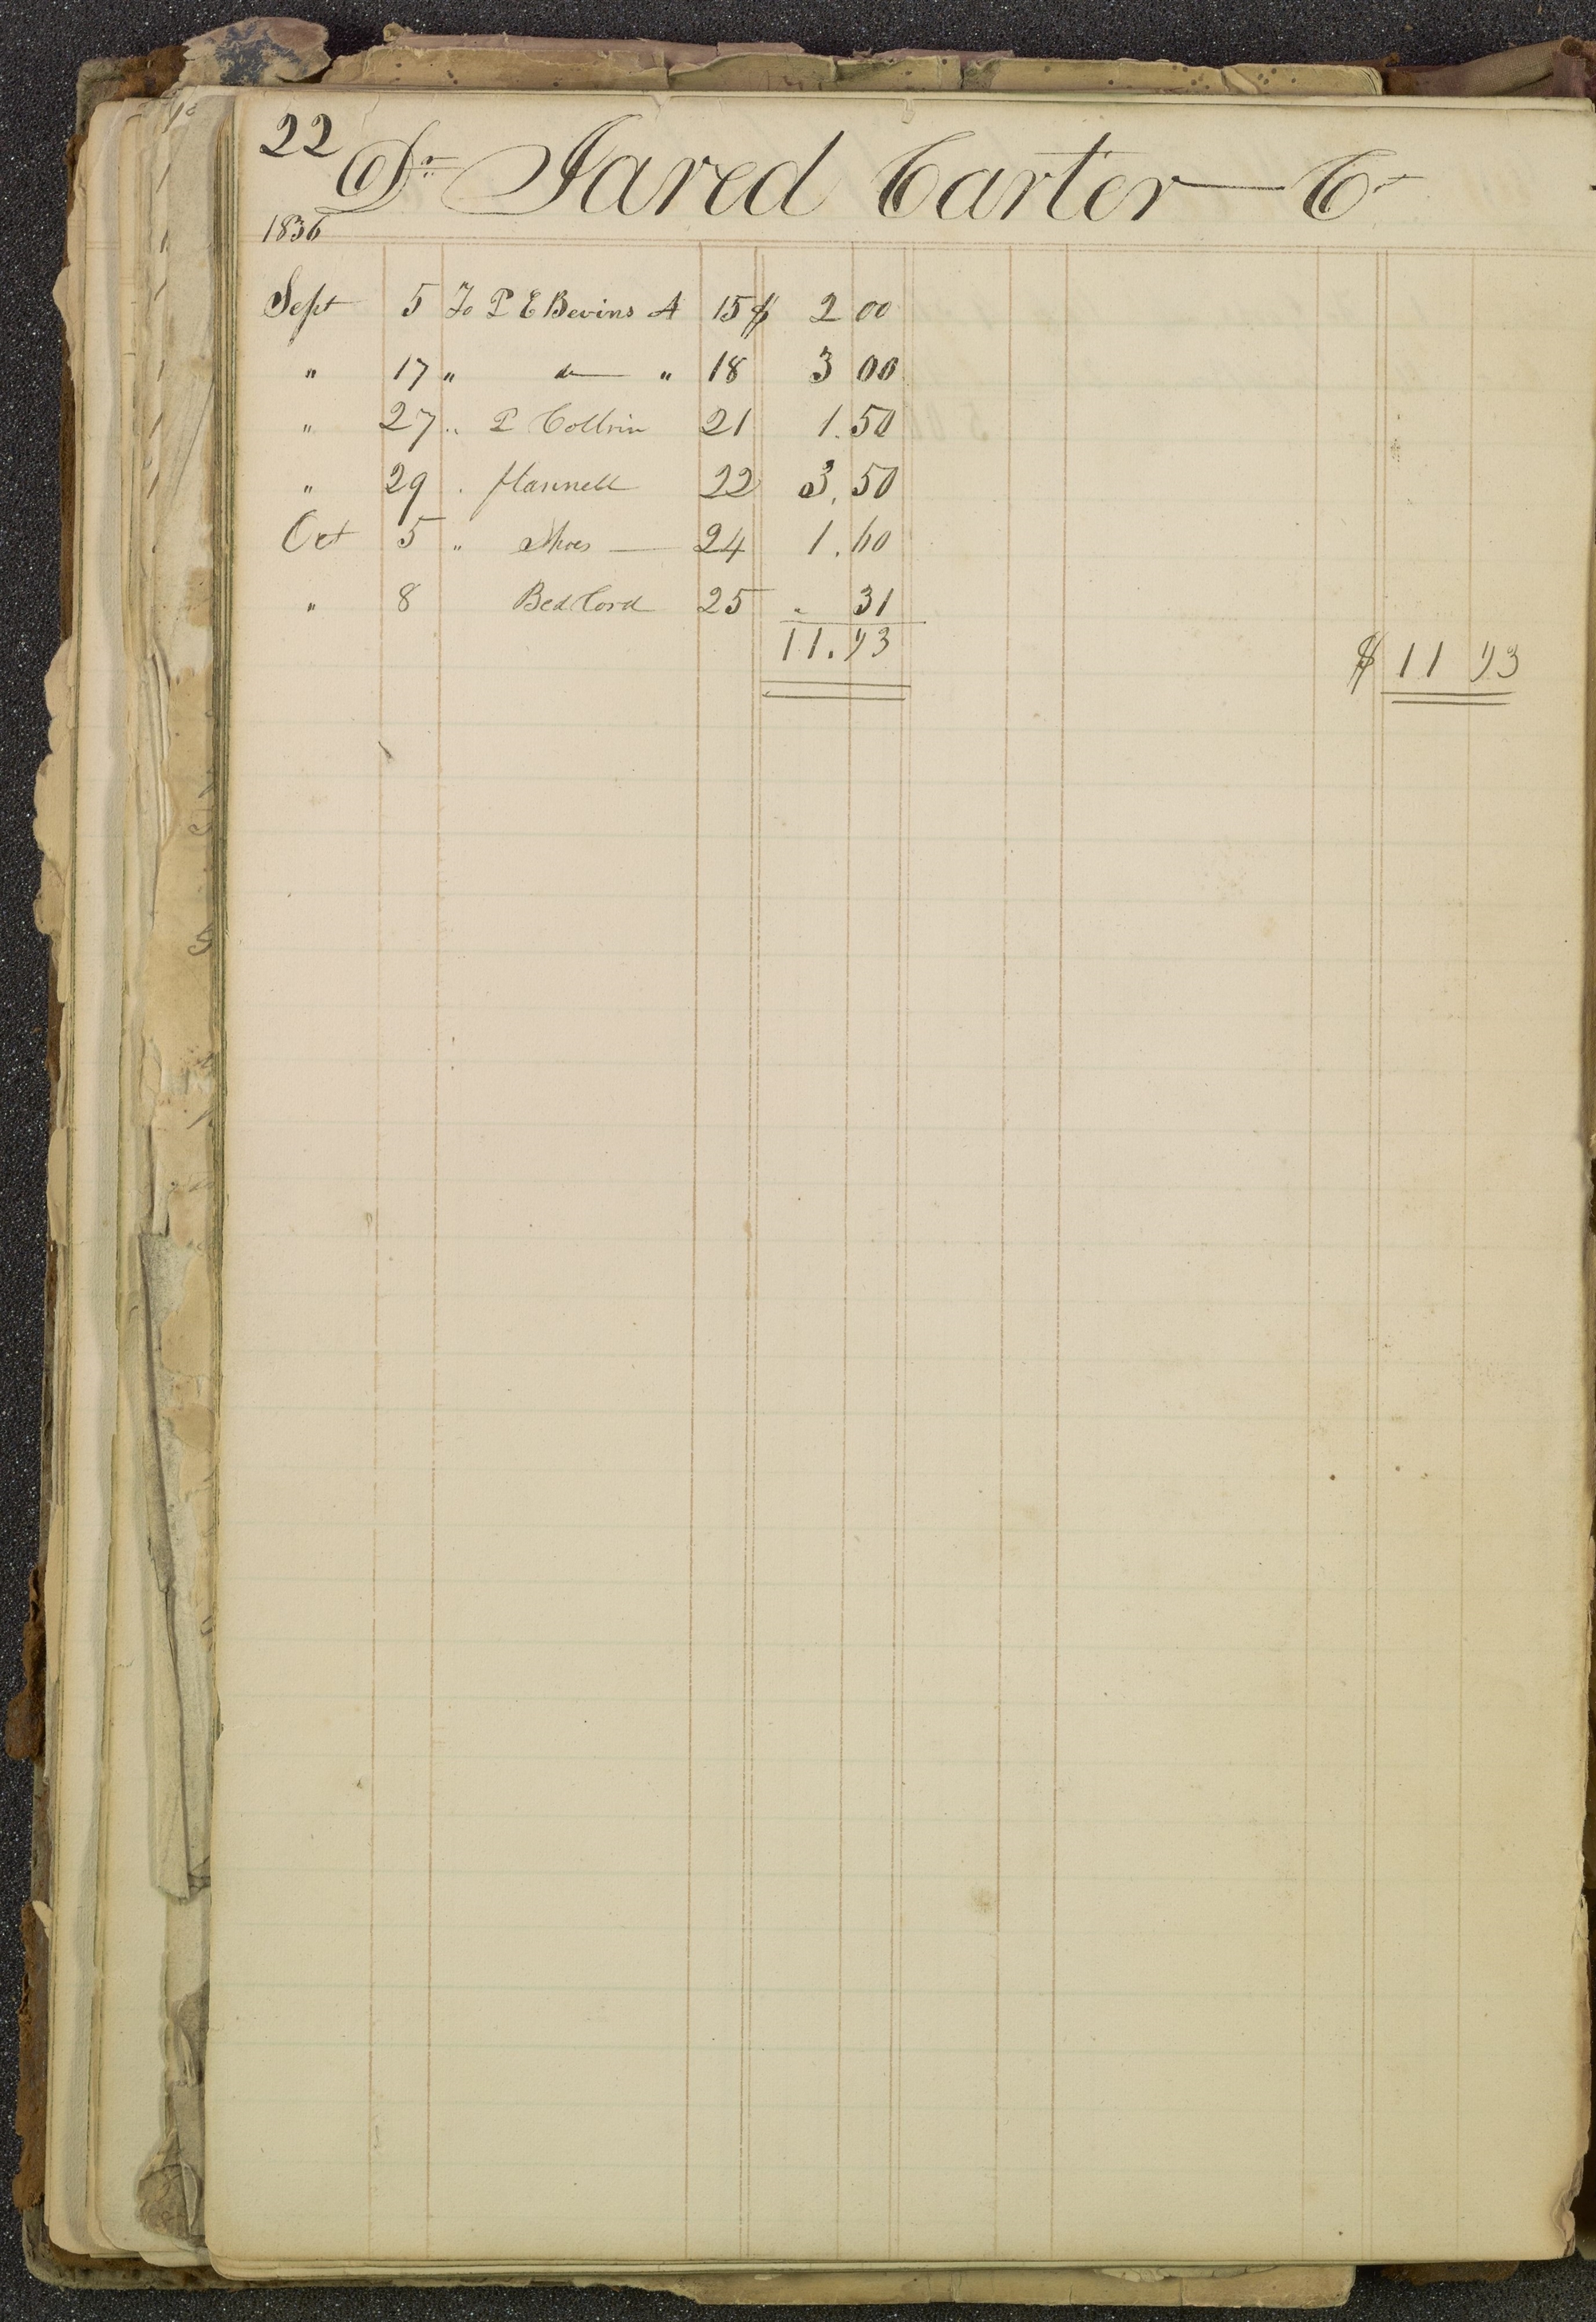 22
Dr Jared Carter Cr
1836
Sept 5 To P E Bevins A 15 $ 2 00
" 17 " do " 18 3 00
" 27 " P Coltrin 21 1.50
" 29 . flannell 22 3.50
Oct 5 " Shoes — 24 1.60
" 8 Bed Cord 25 " 31
11.93
$ 11 93